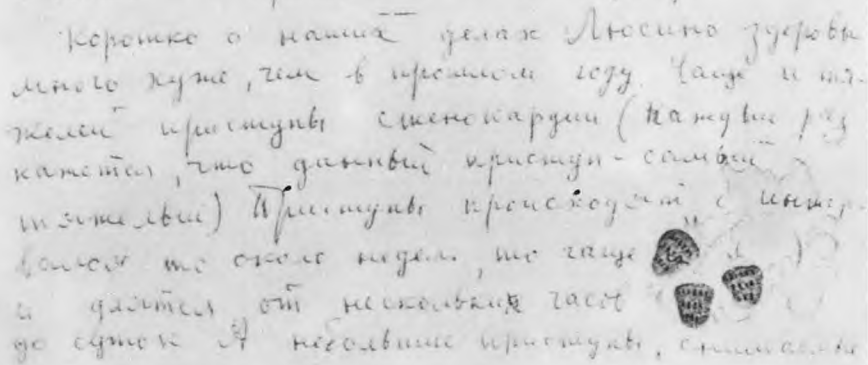 Коротко о наших делах Люсино здоровье
много хуже, чем в прошлом году. Чаще и тя-
желей приступы стенокардии (каждый раз
кажется, что данный приступ - самый
тяжелый) Приступы происходят с интер-
валом то около недели, то чаще
и длятся от нескольких часов
до суток А небольшие приступы, снимаемые